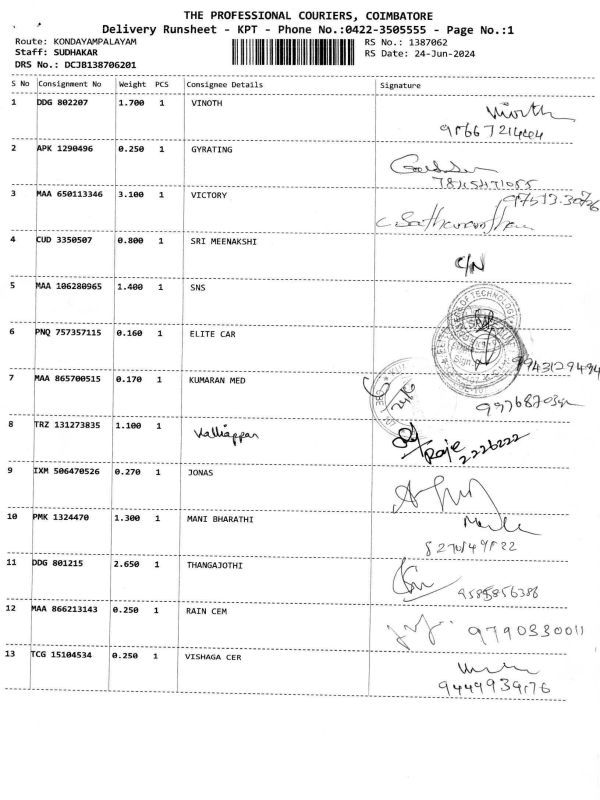 THE PROFESSIONAL COURIERS, COIMBATORE
Delivery Runsheet - KPT - Phone No.:0422-3505555 - Page No.:1
Route: KONDAYAMPALAYAM RS No.: 1387062
Staff: SUDHAKAR RS Date: 24-Jun-2024
DRS No.: DCJB138706201
S No Consignment No Weight PCS Consignee Details Signature
1 DDG 802207 1.700 1 VINOTH
2 APK 1290496 0.250 1 GYRATING
3 MAA 650113346 3.100 1 VICTORY
4 CUD 3350507 0.800 1 SRI MEENAKSHI C/N
5 MAA 106280965 1.400 1 SNS
6 PNQ 757357115 0.160 1 ELITE CAR
9943129494
7 MAA 865700515 0.170 1 KUMARAN MED
24/6
8 TRZ 131273835 1.100 1 Kalliappan
Raje
2226222
9 IXM 506470526 0.270 1 JONAS
10 PMK 1324470 1.300 1 MANI BHARATHI
11 DDG 801215 2.650 1 THANGAJOTHI
9585856386
12 MAA 866213143 0.250 1 RAIN CEM 9790330011
13 TCG 15104534 0.250 1 VISHAGA CER
9449939176